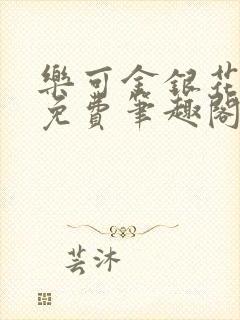 樂可金銀花
免費筆趣閣
芸沐